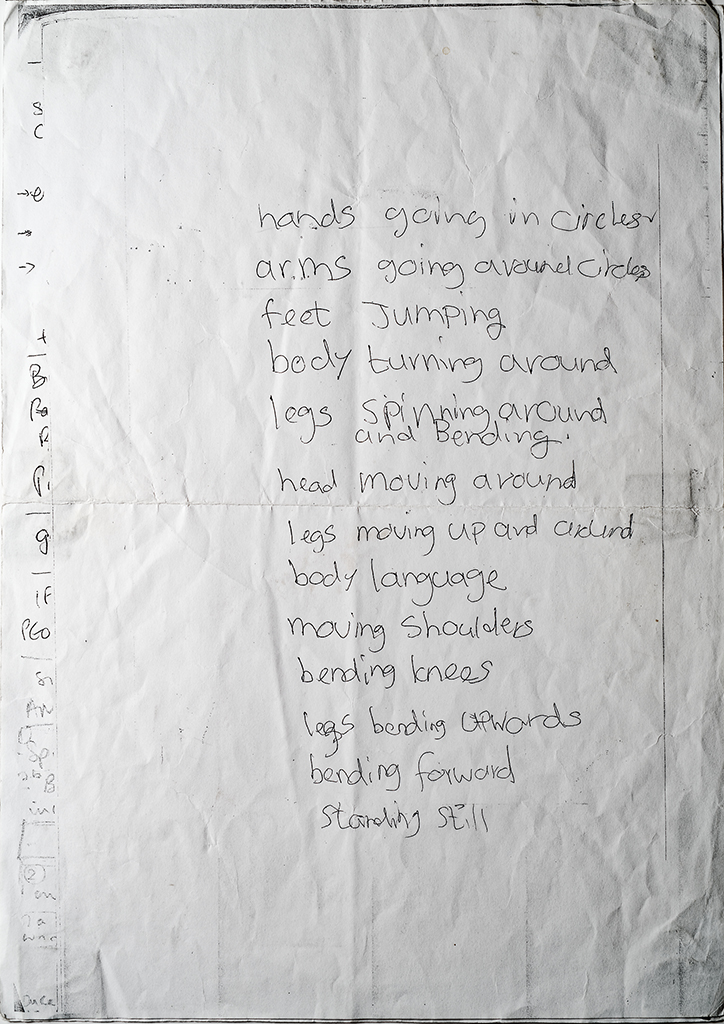 hands going in circles
arms going around circles
feet Jumping
body turning around
legs spinning around
and Bending.
head moving around
legs moving up and around
body language
moving shoulders
bending knees
legs bending upwards
bending forward
standing still